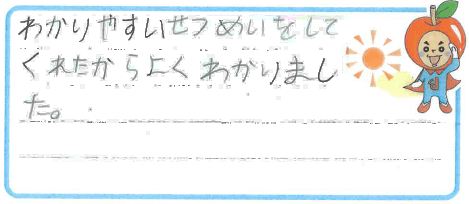 わかりやすいせつめいをして
くれたからよくわかりまし
た。